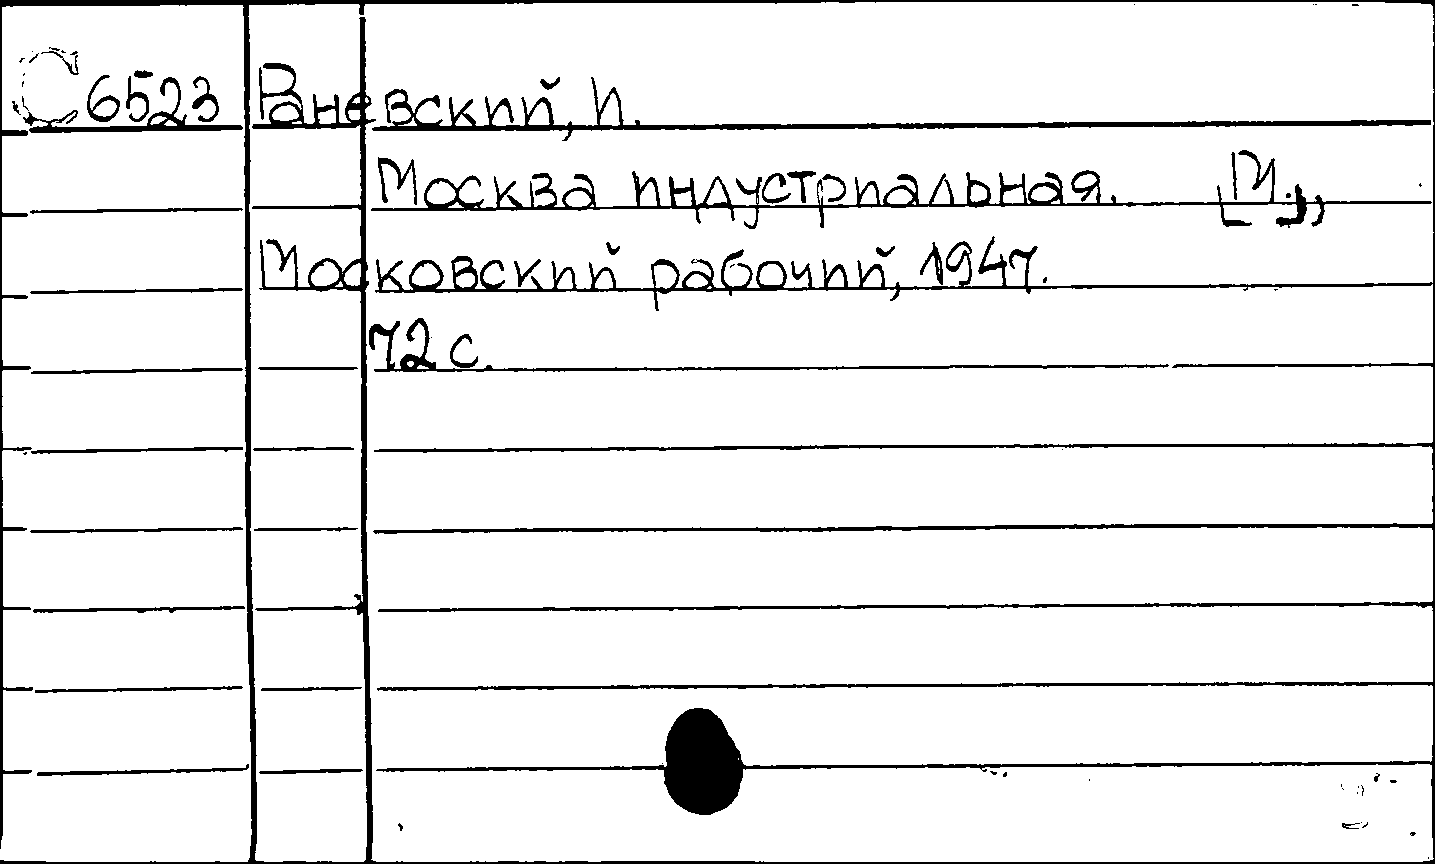 С 6523 Раневский, И.
Москва индустриальная. [М.],
Московский рабочий, 1947.
72 с.